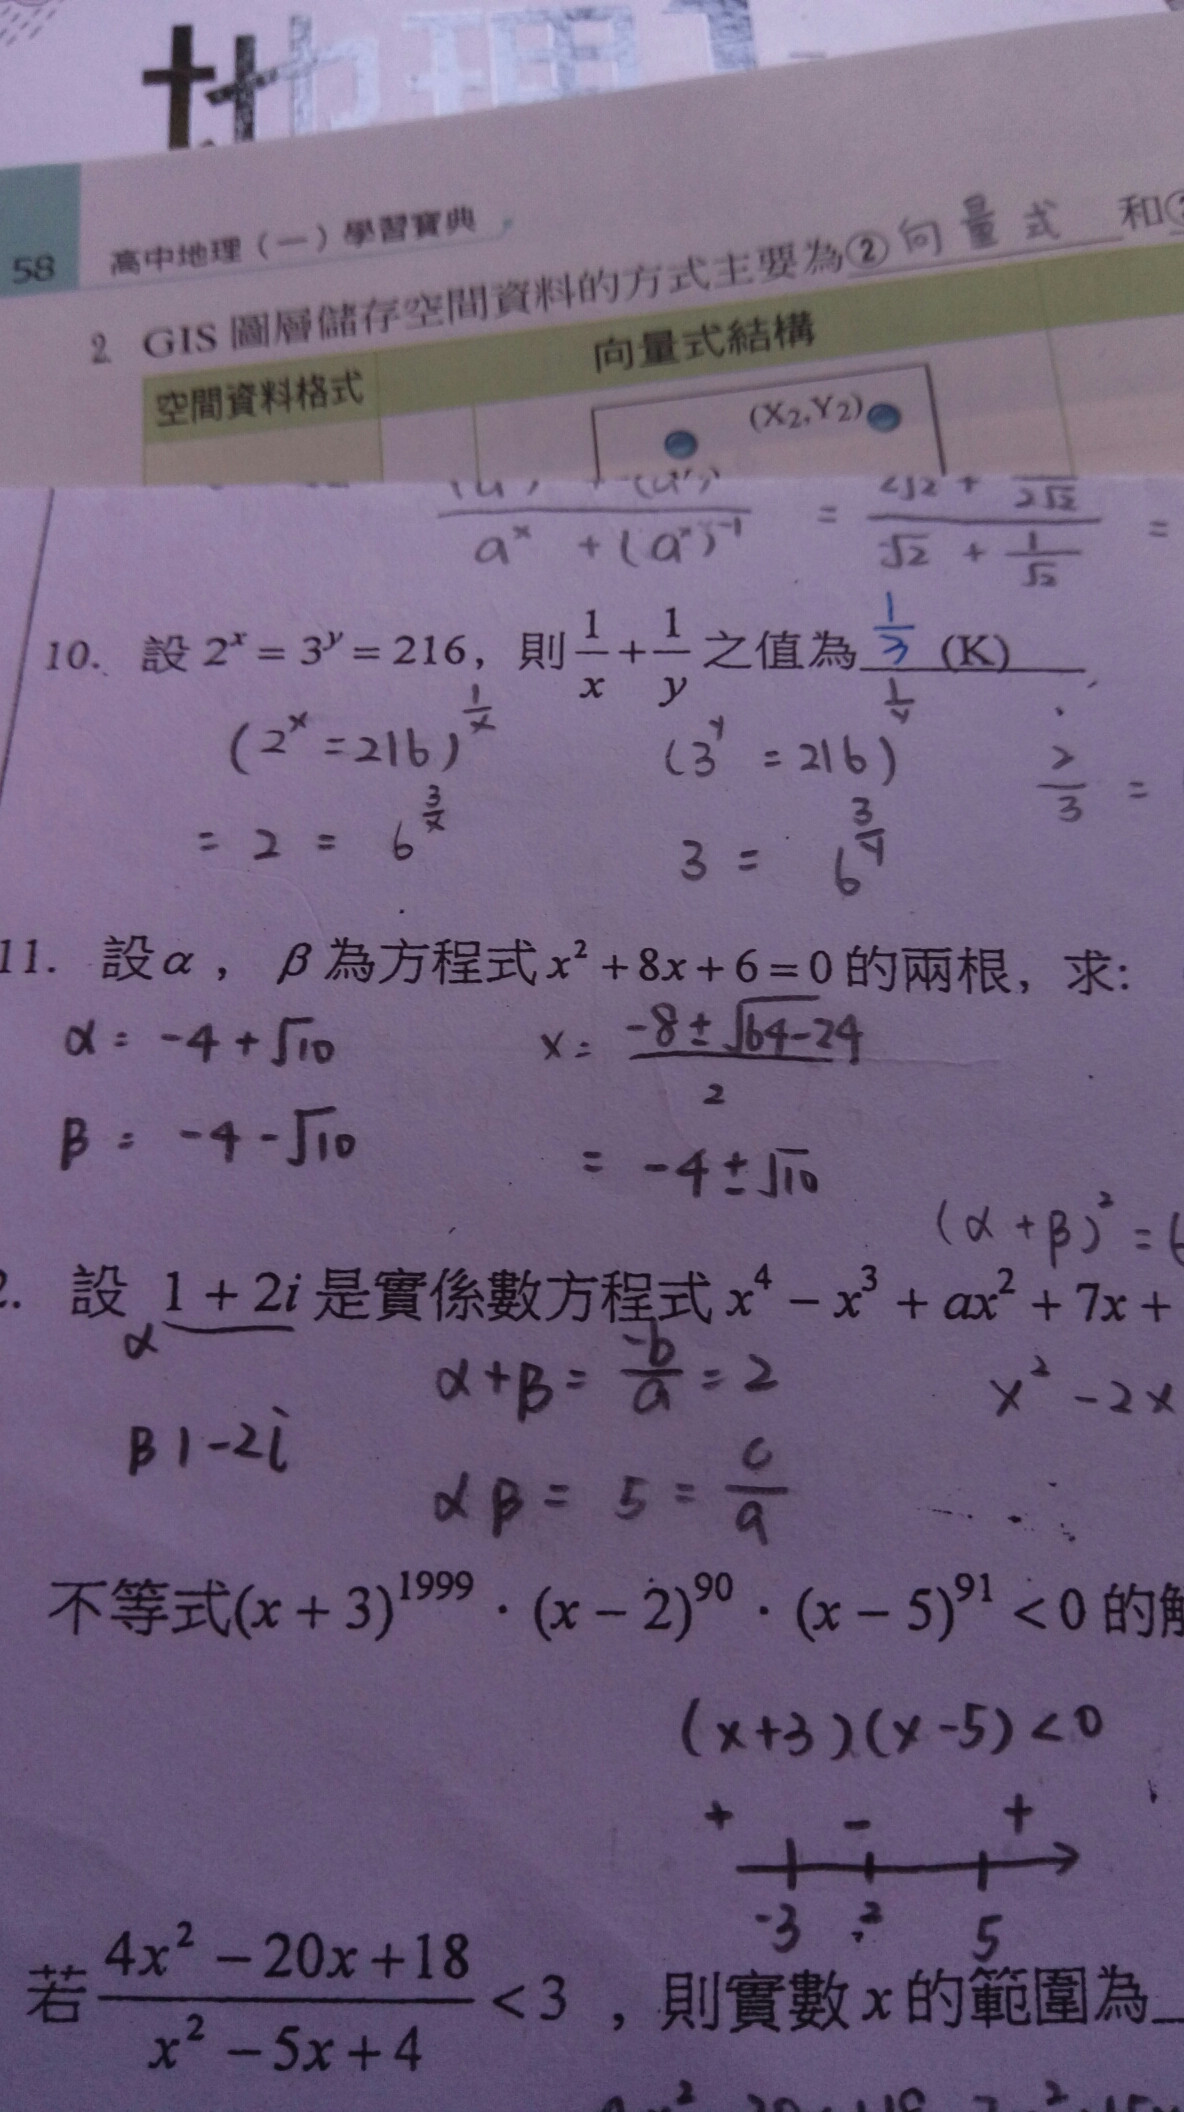 地理1
58 高中地理(一)學習寶典
2 GIS 圖層儲存空間資料的方式主要為②向量式 和
空間資料格式 向量式結構
(X₂,Y₂)
a^x + (a^x)^-1 = √2 + 1/√2 =
10. 設 2^x = 3^y = 216，則 1/x + 1/y 之值為 1/3 (K)
(2^x = 216)^(1/x) (3^y = 216)^(1/y) 2/3 =
= 2 = 6^(3/x) 3 = 6^(3/y)
11. 設α，β為方程式 x² + 8x + 6 = 0 的兩根，求:
α = -4 + √10 x = (-8 ± √64-24)/2
β = -4 - √10 = -4 ± √10
(α + β)² =
2. 設 1 + 2i 是實係數方程式 x⁴ - x³ + ax² + 7x +
α α + β = -b/a = 2 x² - 2x
β 1-2i αβ = 5 = c/a
不等式(x + 3)^1999 · (x - 2)^90 · (x - 5)^91 < 0 的解
(x+3)(x-5)<0
+ - +
-3 2 5
若 (4x² - 20x + 18)/(x² - 5x + 4) < 3，則實數 x 的範圍為